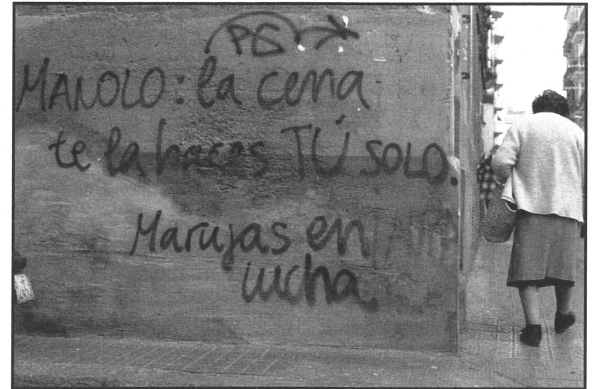 MANOLO: la cena
te la haces TÚ SOLO.
Marujas en
lucha